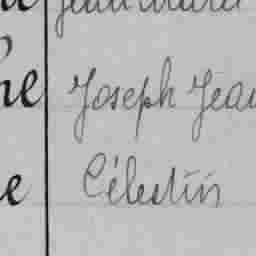 he Joseph Jean
e Célestin